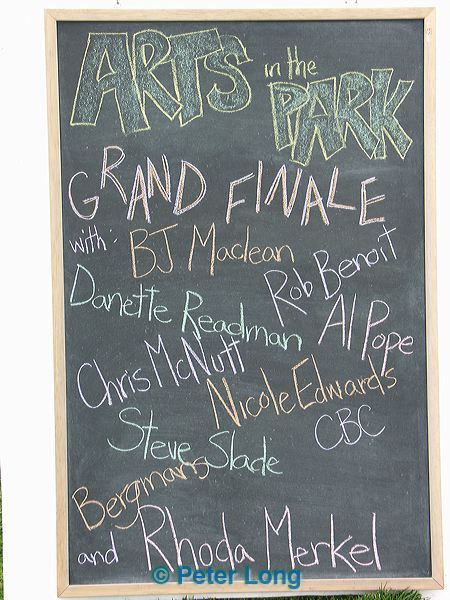 ARTS in the
PARK
GRAND FINALE
with: BJ Maclean
Rob Benoit
Danette Readman
Al Pope
Chris McNutt
Nicole Edwards
CBC
Steve Slade
Bergmans
and Rhoda Merkel
© Peter Long